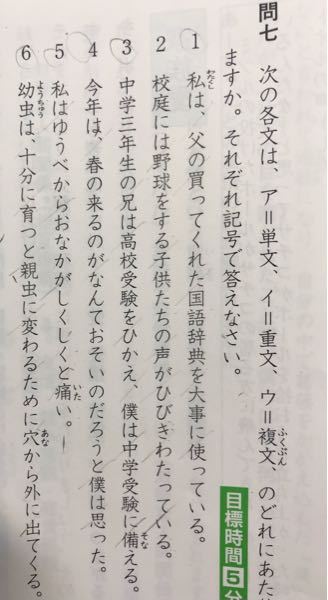 問七 次の各文は、ア＝単文、イ＝重文、ウ＝複文、のどれにあた
ますか。それぞれ記号で答えなさい。
目標時間5分
1 私は、父の買ってくれた国語辞典を大事に使っている。
2 校庭には野球をする子供たちの声がひびきわたっている。
3 中学三年生の兄は高校受験をひかえ、僕は中学受験に備える。
4 今年は、春の来るのがなんておそいのだろうと僕は思った。
5 私はゆうべからおなかがしくしくと痛い。
6 幼虫は、十分に育つと親虫に変わるために穴から外に出てくる。